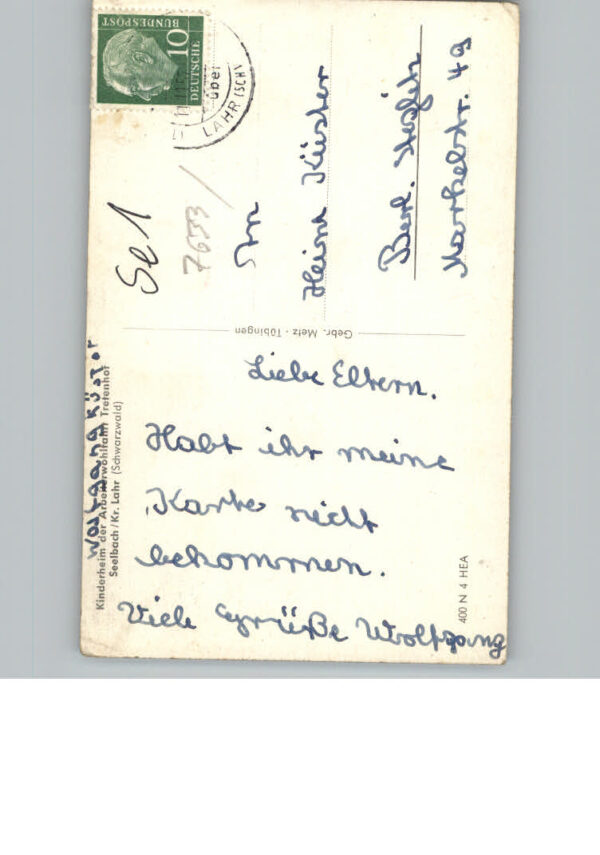 DEUTSCHE
BUNDESPOST
10
über
LAHR (SCHW
Se 1
7633 /
An
Heinz Küster
Berl. Steglitz
Markelstr. 49
Gebr. Metz · Tübingen
Wolfgang Küster
Kinderheim der Arbeiterwohlfahrt Tretenhof
Seelbach/Kr. Lahr (Schwarzwald)
Liebe Eltern.
Habt ihr meine
Karte nicht
bekommen.
Viele Grüße Wolfgang
400 N 4 HEA